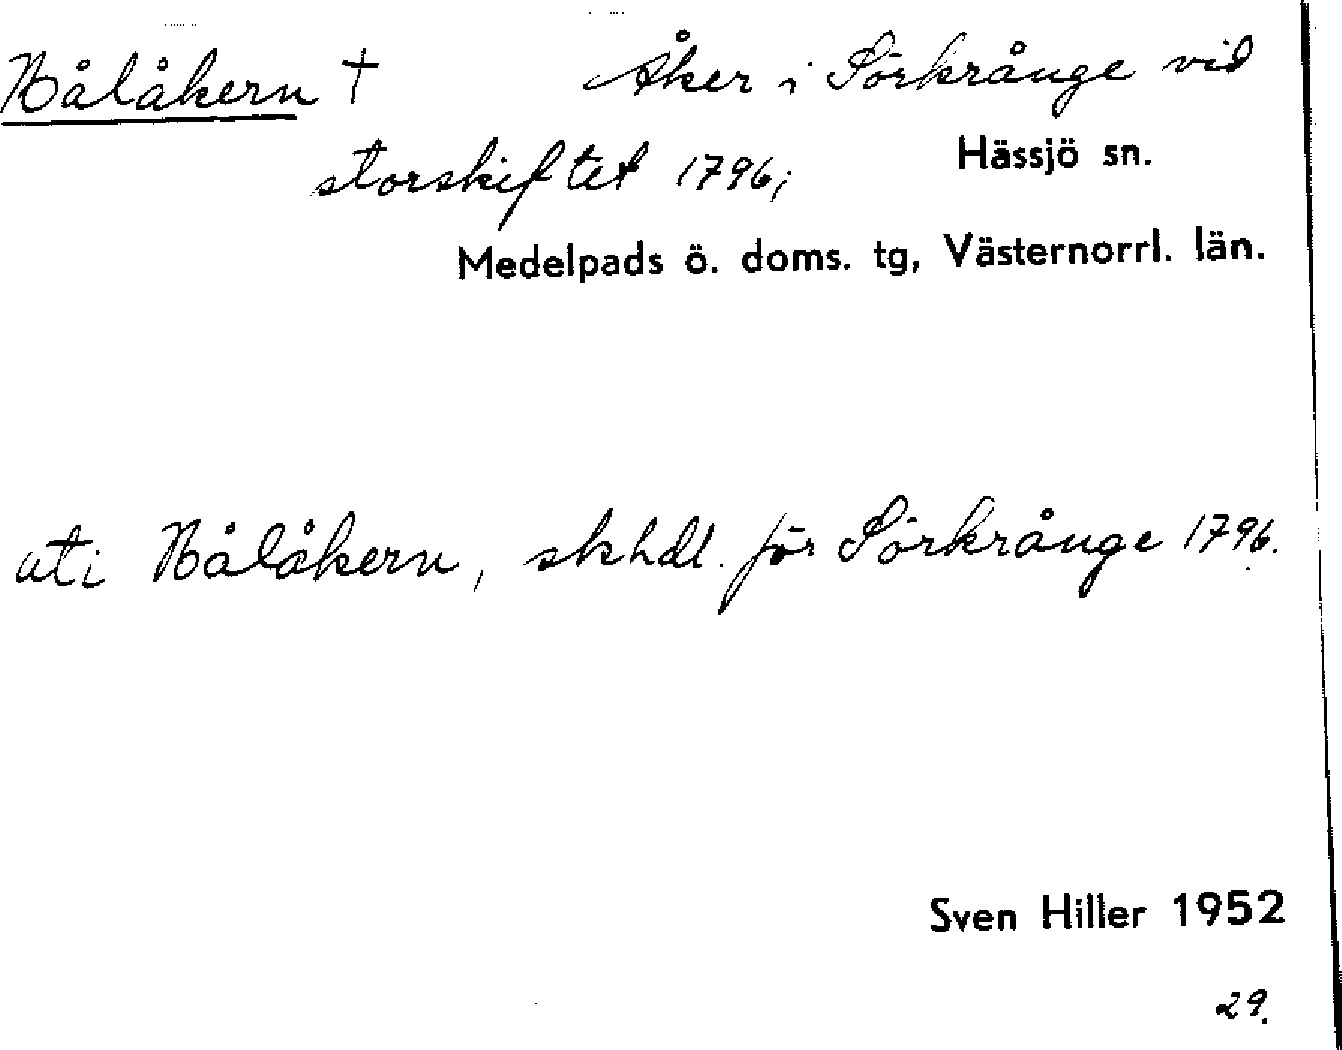 Bålåkern † Åker i Sörkrånge vid
storskiftet 1796;
Hässjö sn.
Medelpads ö. doms. tg, Västernorrl. län.
uti Bålåkern, skhdl. för Sörkrånge 1796.
Sven Hiller 1952
29.